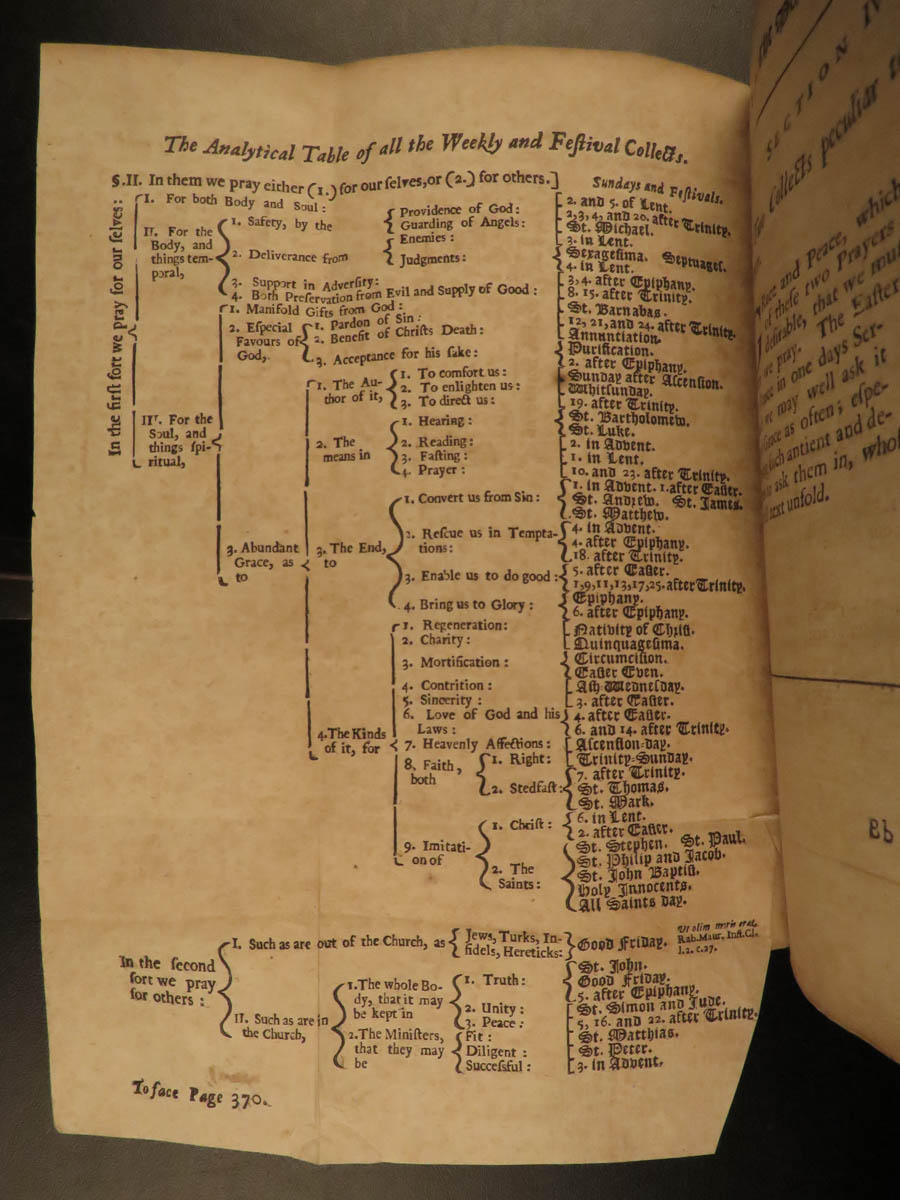 The Analytical Table of all the Weekly and Feſtival Collects.
§.II. In them we pray either (1.) for our ſelves, or (2.) for others.]
Sundays and Feſtivals.
In the firſt ſort we pray for our ſelves:
I. For both Body and Soul:
2. and 5. of Lent.
II. For the Body, and things temporal,
1. Safety, by the
Providence of God:
2,3,4, and 20. after Trinity.
Guarding of Angels:
St. Michael.
2. Deliverance from
Enemies:
3. in Lent.
Judgments:
Sexageſima. Septuageſ.
4. in Lent.
3. Support in Adverſity:
3,4. after Epiphany.
4. Both Preſervation from Evil and Supply of Good:
8. 15. after Trinity.
III. For the Soul, and things ſpiritual,
1. Manifold Gifts from God:
St. Barnabas.
2. Eſpecial Favours of God,
1. Pardon of Sin:
12, 21, and 24. after Trinity.
2. Benefit of Chriſts Death:
Annuntiation.
3. Acceptance for his ſake:
Purification.
2. after Epiphany.
3. Abundant Grace, as to
1. The Author of it,
1. To comfort us:
Sunday after Aſcenſion.
2. To enlighten us:
Whitſunday.
3. To direct us:
19. after Trinity.
2. The means in
1. Hearing:
St. Bartholomew.
St. Luke.
2. Reading:
2. in Advent.
3. Faſting:
1. in Lent.
4. Prayer:
10. and 23. after Trinity.
3. The End, to
1. Convert us from Sin:
1. in Advent. 1. after Eaſter.
St. Andrew. St. James.
St. Matthew.
2. Reſcue us in Temptations:
4. in Advent.
4. after Epiphany.
18. after Trinity.
3. Enable us to do good:
5. after Eaſter.
1,9,11,13,17,25. after Trinity.
4. Bring us to Glory:
Epiphany.
6. after Epiphany.
4. The Kinds of it, for
1. Regeneration:
Nativity of Chriſt.
2. Charity:
Quinquageſima.
3. Mortification:
Circumciſion.
Eaſter Even.
4. Contrition:
Aſh-Wedneſday.
5. Sincerity:
3. after Eaſter.
6. Love of God and his Laws:
4. after Eaſter.
6. and 14. after Trinity.
7. Heavenly Affections:
Aſcenſion-day.
8. Faith, both
1. Right:
Trinity-Sunday.
2. Stedfaſt:
7. after Trinity.
St. Thomas.
St. Mark.
9. Imitation of
1. Chriſt:
6. in Lent.
2. after Eaſter.
2. The Saints:
St. Stephen. St. Paul.
St. Philip and Jacob.
St. John Baptiſt.
Holy Innocents.
All Saints day.
In the ſecond ſort we pray for others:
I. Such as are out of the Church, as
Jews, Turks, Infidels, Hereticks:
Good Friday.
Rab. Maur. Inſt. Cl.
l.2. c.37.
II. Such as are in the Church,
1. The whole Body, that it may be kept in
1. Truth:
St. John.
Good Friday.
5. after Epiphany.
2. Unity:
St. Simon and Jude.
3. Peace:
5, 16. and 22. after Trinity.
2. The Miniſters, that they may be
Fit:
St. Matthias.
Diligent:
St. Peter.
Succeſsful:
3. in Advent.
To face Page 370.
SECTION IV
Collects peculiar
and Peace, which
of theſe two Prayers
deſirable, that we muſt
we pray. The Eaſter
in one days Ser-
we may well ask it
as often; eſpe-
ſuch antient and de-
ask them in, whoſe
next unfold.
Bb